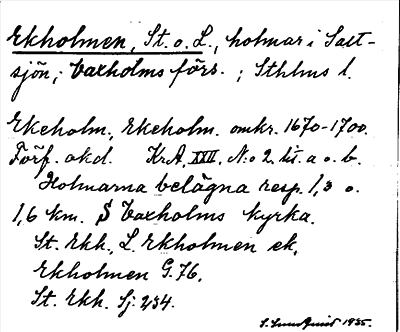 Ekholmen, St. o. L., holmar i Salt-
sjön, Vaxholms förs.; Sthlms l.
Ekeholm, Ekeholm. omkr. 1670-1700.
Förf. okd. KrA, XXII, N:o 2 lit. a o. b.
Holmarna belägna resp. 1,3 o.
1,6 km. S Vaxholms kyrka.
St. Ekh., L. Ekholmen ek.
Ekholmen G. 76.
St. Ekh. Sj: 234.
1935.